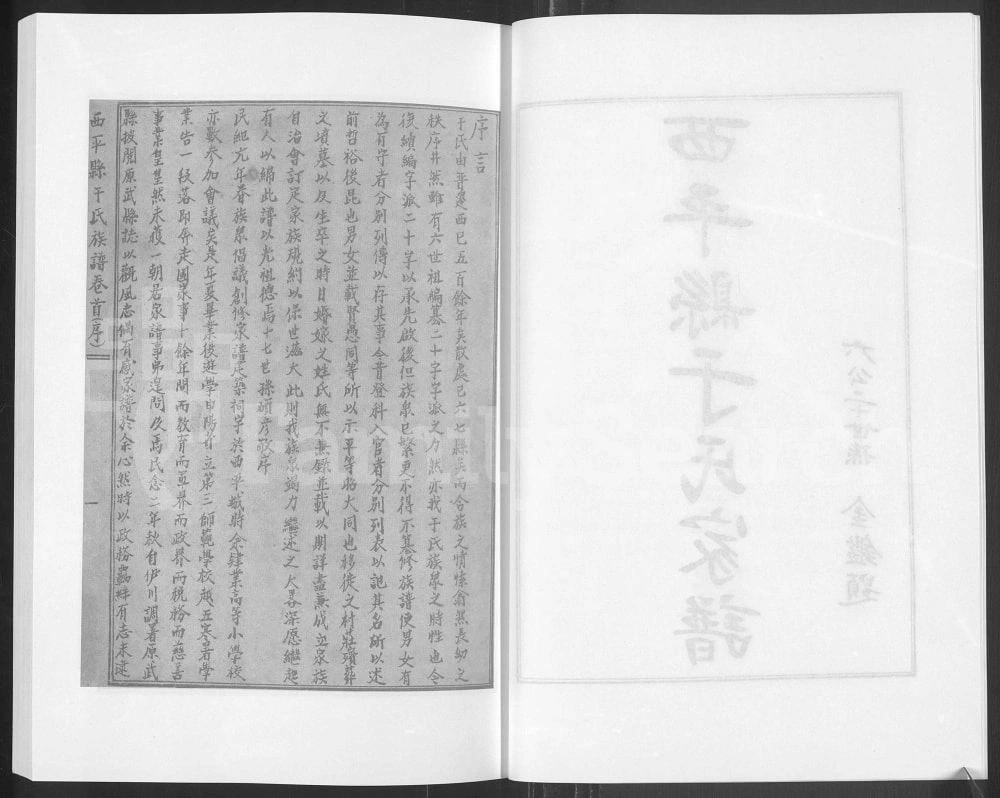 西平縣于氏家譜
六公二十世孫 全鑑題
序言
于氏由晋遷西已五百餘年矣散處已六七縣矣而合族之情愫翕然長幼之
秩序井然雖有六世祖編纂二十字字派之力然亦我于氏族衆之特性也今
復續編字派二十字以承先啟後但族衆已繁更不得不纂修族譜使男女有
為有守者分別列傳以存其事今昔登科入官者分別列表以記其名所以述
前哲裕後昆也男女並載賢愚同等所以示平等昭大同也移徙之村莊殯葬
之墳墓以及生卒之時日婚嫁之姓氏無不兼錄並載以期詳盡兼成立宗族
自治會訂定家族規約以保世滋大此則我族衆竭力繼述之大畧深愿繼起
有人以緝此譜以光祖德焉十七世孫碩彥敬序
民紀九年春族衆倡議創修家譜建築祠堂於西平城時余肄業高等小學校
亦歡參加會議矣是年夏畢業後遊學申陽省立第三師範學校越五寒暑學
業告一段落即奔走國家事十餘年間而教育而軍界而政界而稅務而慈善
事業皇皇然未獲一朝居家譜事弗遑問及焉民念二年秋自伊川調署原武
縣披閱原武縣誌以觀風志偶有感家譜於余心然時以政務羈絆有志未逮
西平縣于氏族譜卷首(序)
一